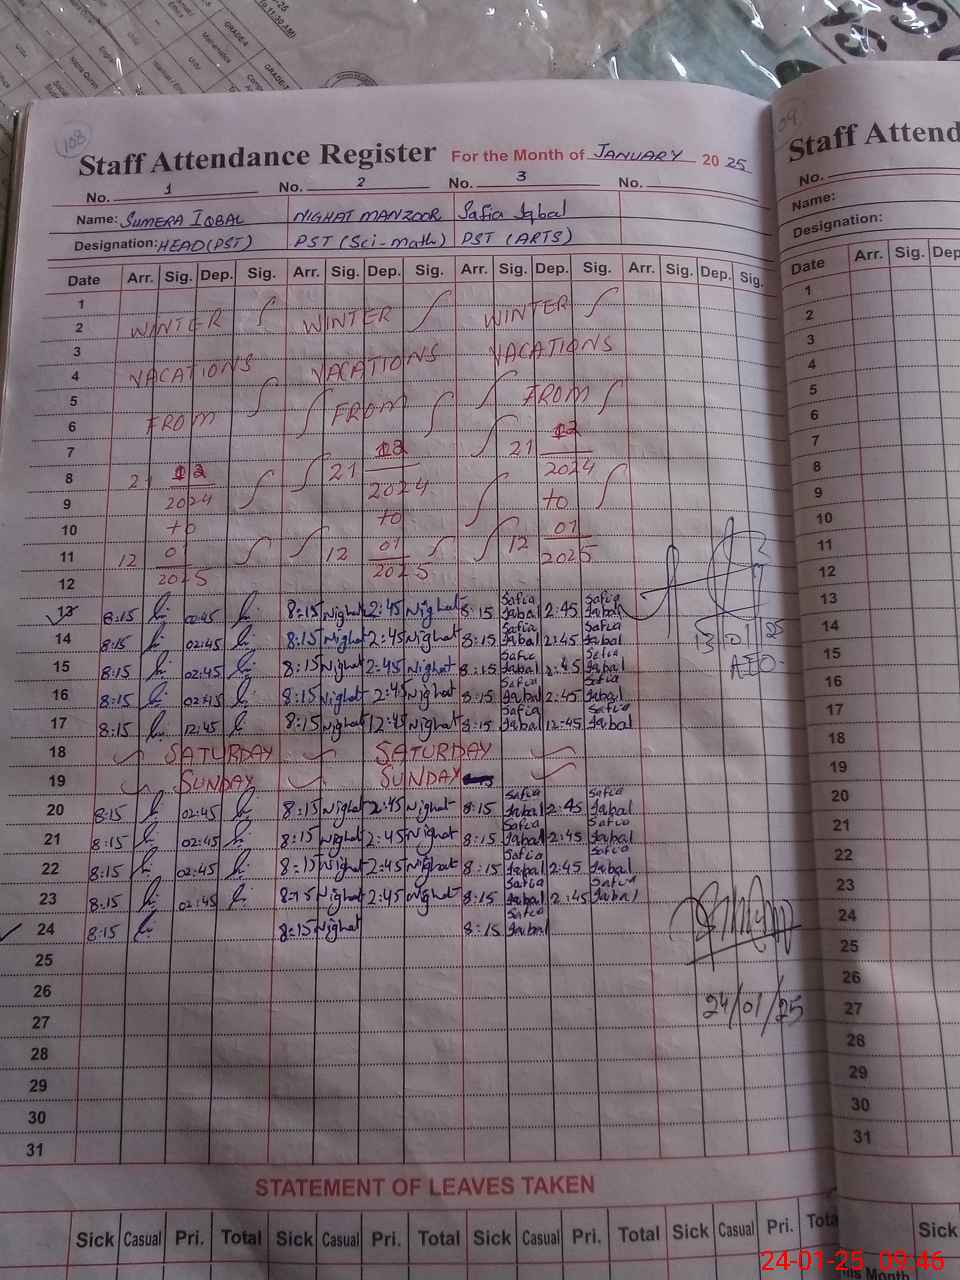 GRADE-4
GRADE-
Mathematics
Urdu
108
Staff Attendance Register For the Month of JANUARY 2025
No. 1 No. 2 No. 3 No.
Name: SUMERA IQBAL NIGHAT MANZOOR Safia Iqbal
Designation: HEAD(PST) PST (Sci-math) PST (ARTS)
Date Arr. Sig. Dep. Sig. Arr. Sig. Dep. Sig. Arr. Sig. Dep. Sig. Arr. Sig. Dep. Sig.
1
2 WINTER WINTER WINTER
3
4 VACATIONS VACATIONS VACATIONS
5
6 FROM FROM FROM
7
8 21 12 21 12 21 12
9 2024 2024 2024
10 to to to
11 12 01 12 01 12 01
12 2025 2025 2025
13 8:15 02:45 8:15 Nighat 2:45 Nighat 8:15 Safia Iqbal 2:45 Safia Iqbal
14 8:15 02:45 8:15 Nighat 2:45 Nighat 8:15 Safia Iqbal 2:45 Safia Iqbal
15 8:15 02:45 8:15 Nighat 2:45 Nighat 8:15 Safia Iqbal 2:45 Safia Iqbal
16 8:15 02:45 8:15 Nighat 2:45 Nighat 8:15 Safia Iqbal 2:45 Safia Iqbal
17 8:15 12:45 8:15 Nighat 12:45 Nighat 8:15 Safia Iqbal 12:45 Safia Iqbal
18 SATURDAY SATURDAY
19 SUNDAY SUNDAY
20 8:15 02:45 8:15 Nighat 2:45 Nighat 8:15 Safia Iqbal 2:45 Safia Iqbal
21 8:15 02:45 8:15 Nighat 2:45 Nighat 8:15 Safia Iqbal 2:45 Safia Iqbal
22 8:15 02:45 8:15 Nighat 2:45 Nighat 8:15 Safia Iqbal 2:45 Safia Iqbal
23 8:15 02:45 8:15 Nighat 2:45 Nighat 8:15 Safia Iqbal 2:45 Safia Iqbal
24 8:15 8:15 Nighat 8:15 Safia Iqbal
25
26
27
28
29
30
31
13 01 25
AEO
24/01/25
STATEMENT OF LEAVES TAKEN
Sick Casual Pri. Total Sick Casual Pri. Total Sick Casual Pri. Total Sick Casual Pri. Tota
09
Staff Attend
No.
Name:
Designation:
Date Arr. Sig. Dep
1
2
3
4
5
6
7
8
9
10
11
12
13
14
15
16
17
18
19
20
21
22
23
24
25
26
27
28
29
30
31
Sick
This Month
24-01-25 09:46